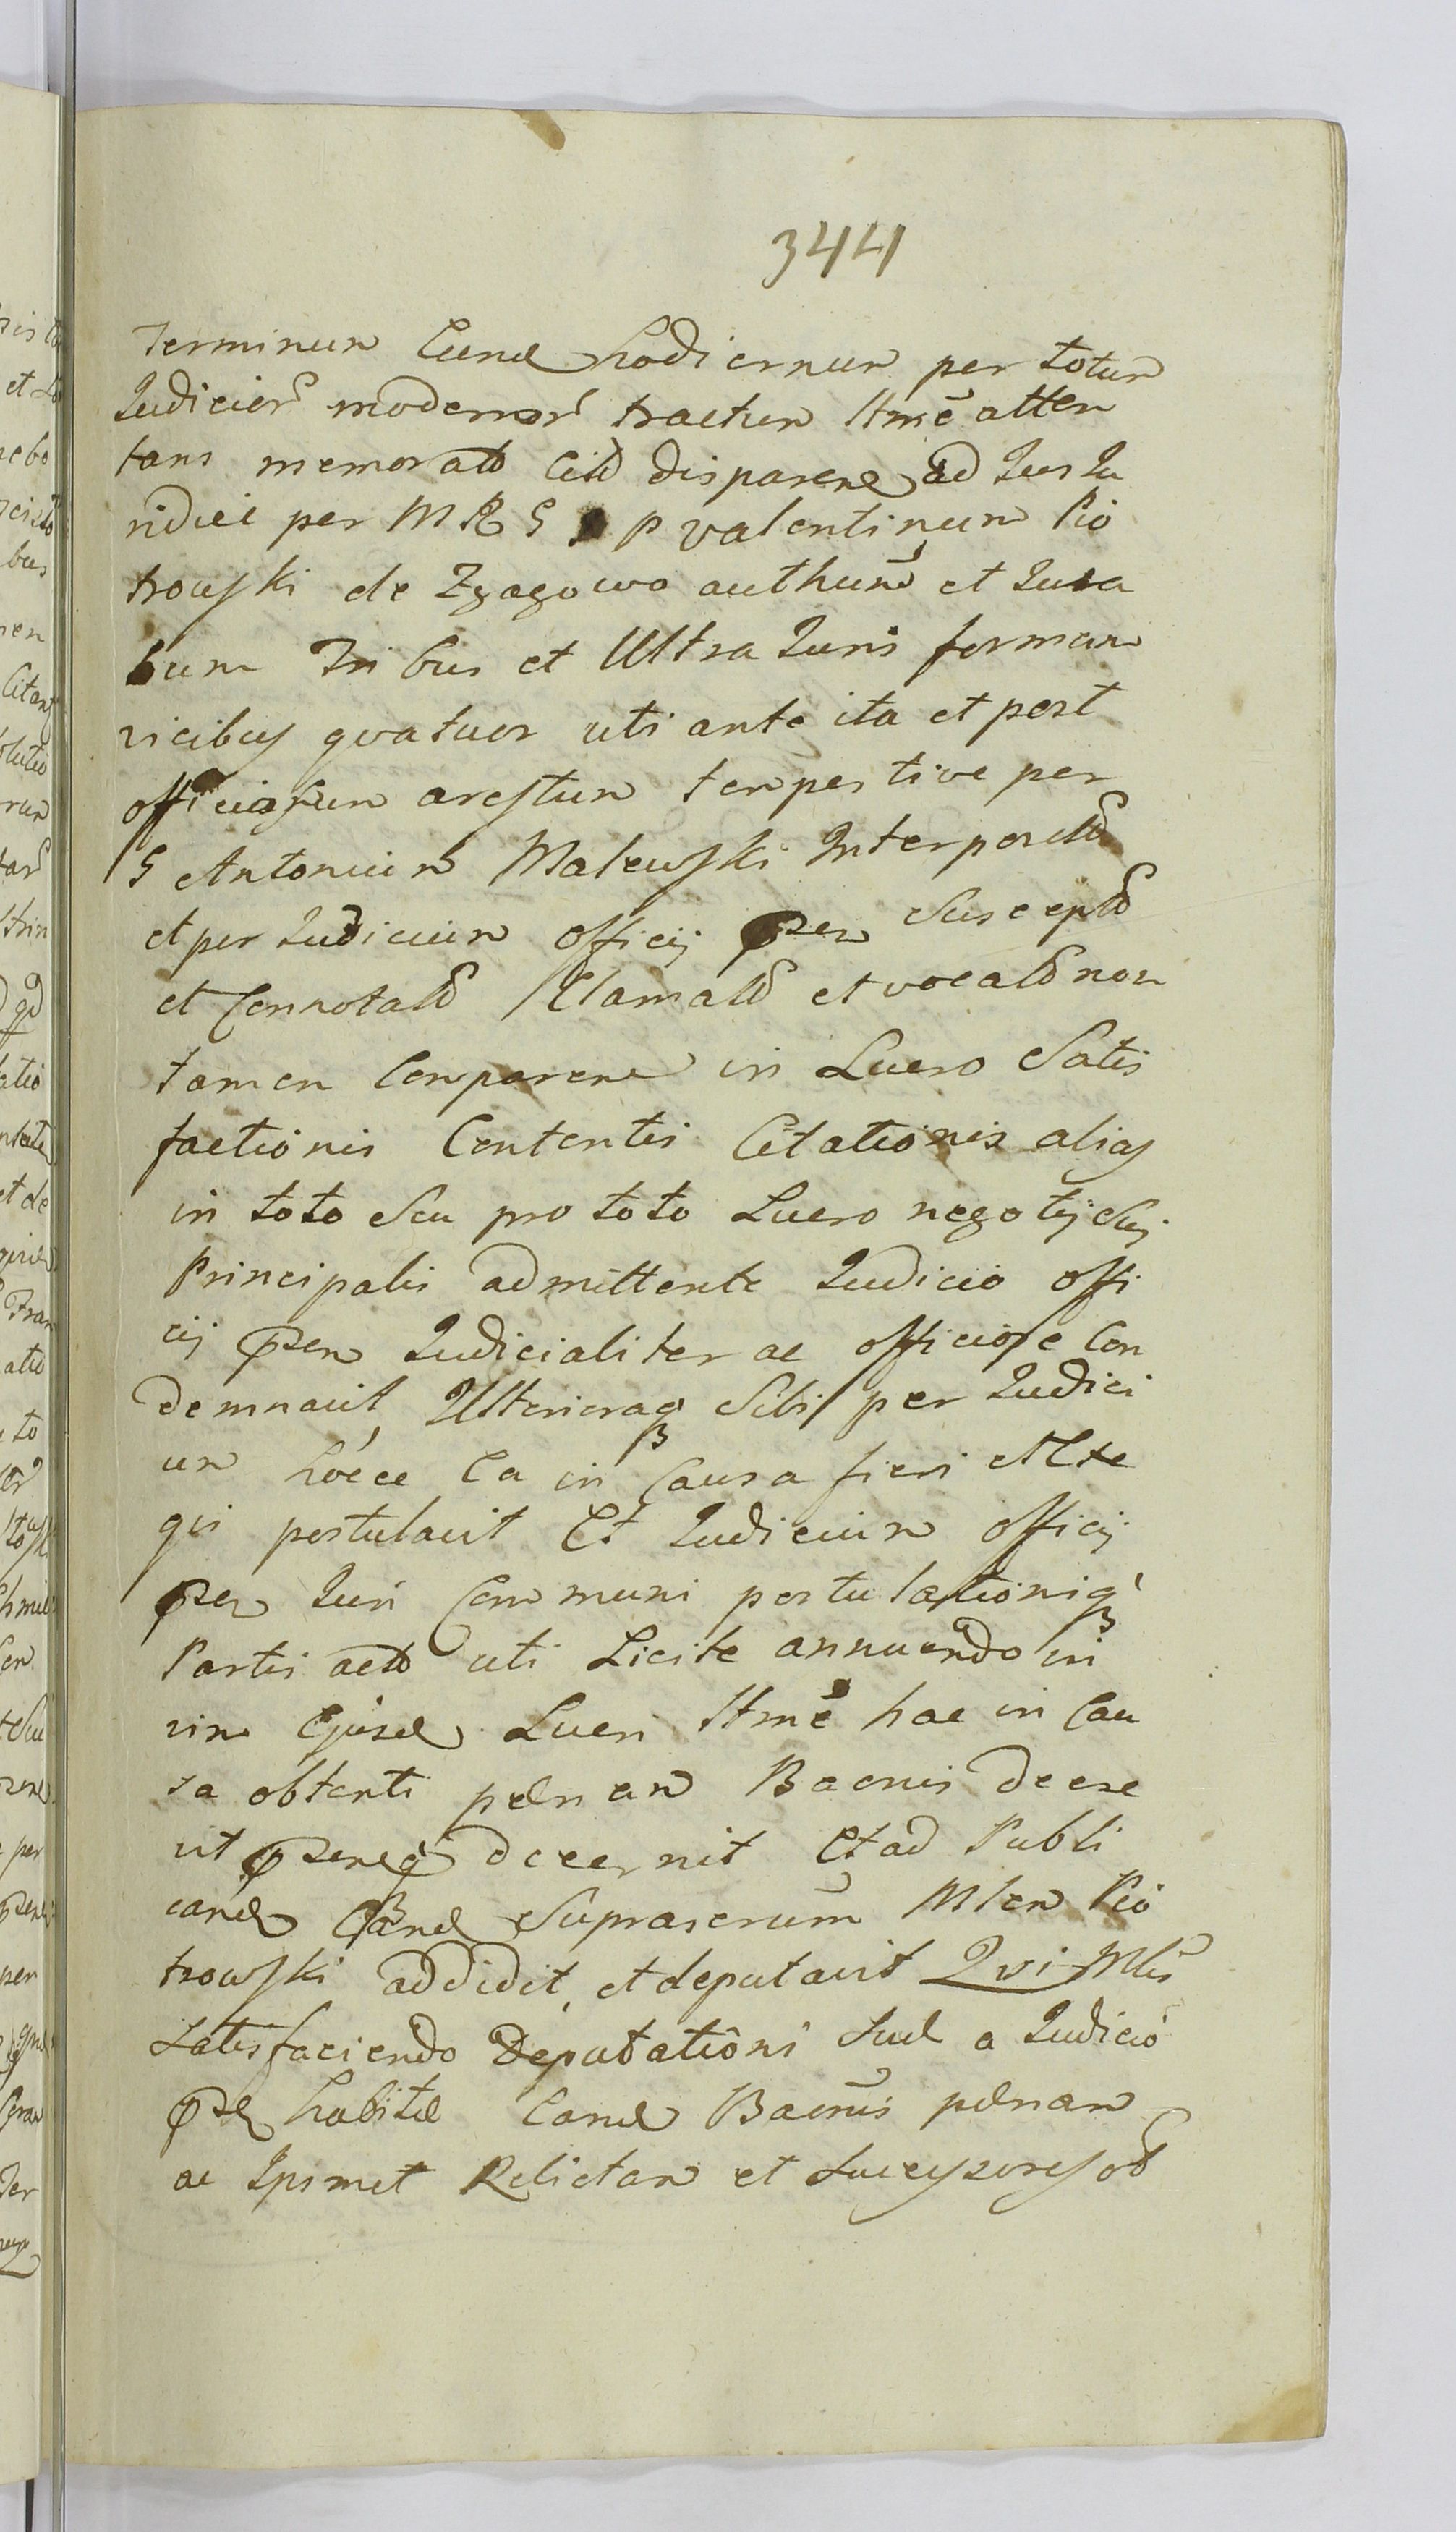 344
Terminum hodiernum per totum
Judicior modernor tractum ltimē atten
tans memorato disparere ad Jus Ju
ridice per M R G p valentinum Pio
trowski de Zgagowo authum et Jura
tum Tribus et Ultra Juris formam
vicibus qvatuor uti ante ita et post
officiosum arestum tempestive per
G Antonium Malewski Interposit
et per Judicium officij pzen Suscept
et Connotatt Clamatt et vocatt non
tamen Comparere in Lucro Satis
factionis Contentis Citationis alias
in toto Seu pro toto Lucro negotij Sui
Principalis admittente Judicio offi
cij pzen Judicialiter ac officiose Con
demnavit, Ulterioraq Sibi per Judici
um hocce Ea in Causa fieri et Lte
gi postulavit Et Judicium officij
pzen Juri Communi postulationiq
Partis act uti Licite annuendo in
vim Ejusd Lucri ltmē hac in Cau
sa obtenti pænam Bannis decre
vit pzenq decernit Et ad Publi
cand Eand Suprascrum Mlem Pio
trowski addidit, et deputavit Qvi Mlis
Satisfaciendo Deputationi Suæ a Judicio
pze habitæ Eand Bannis pænam
ac Ipsmet Relictam et Sucessores ob